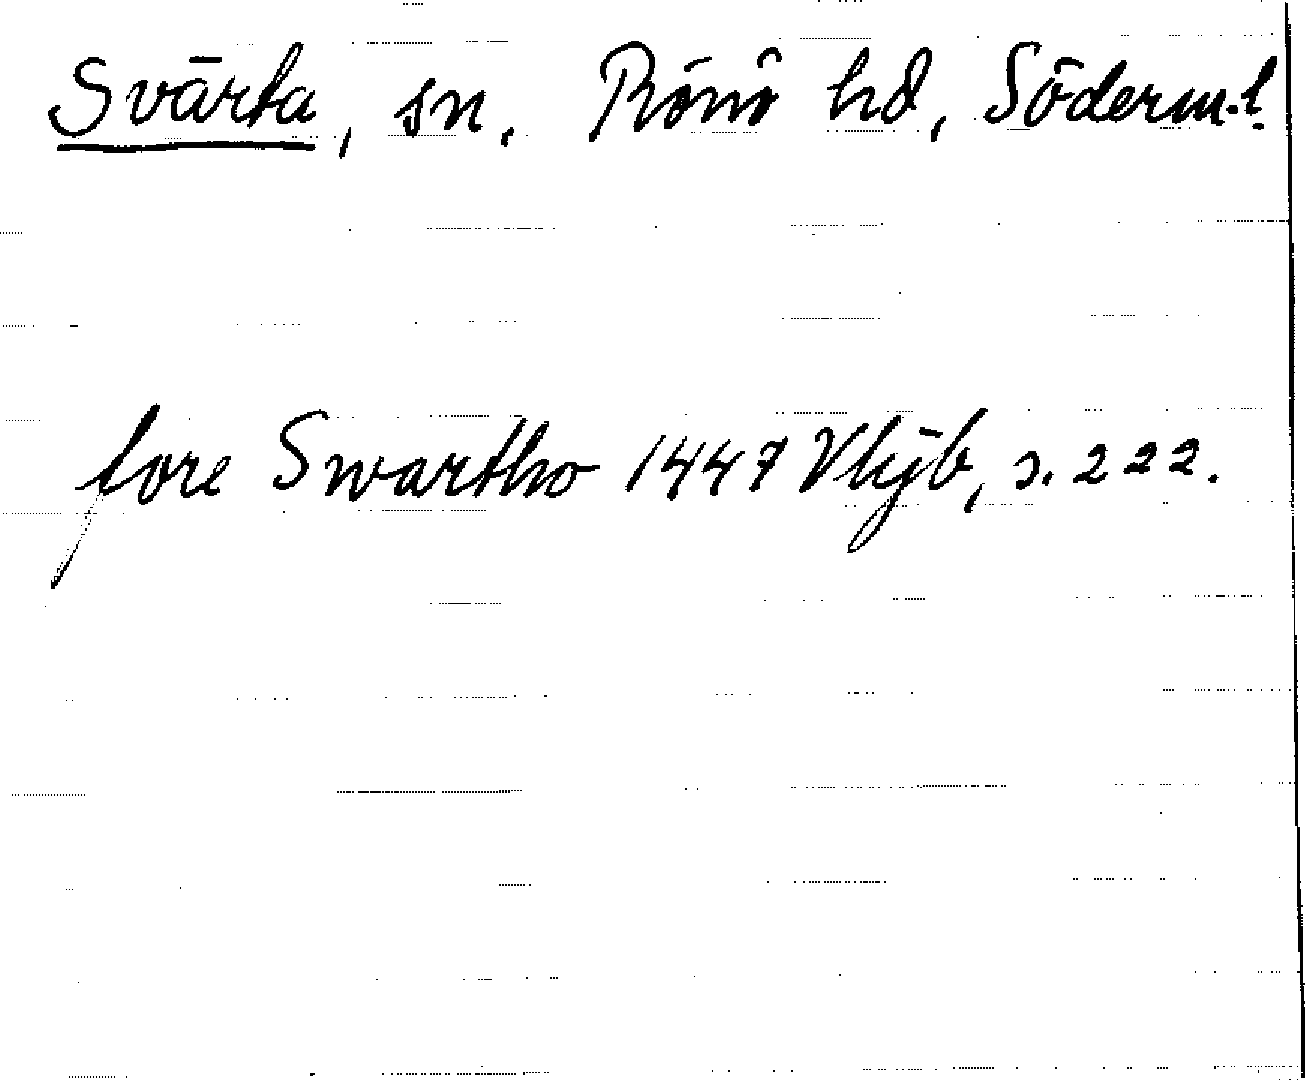 Svärta, sn. Rönö hd, Söderm.l.
fore Swartho 1447 Vkjb, s. 222.